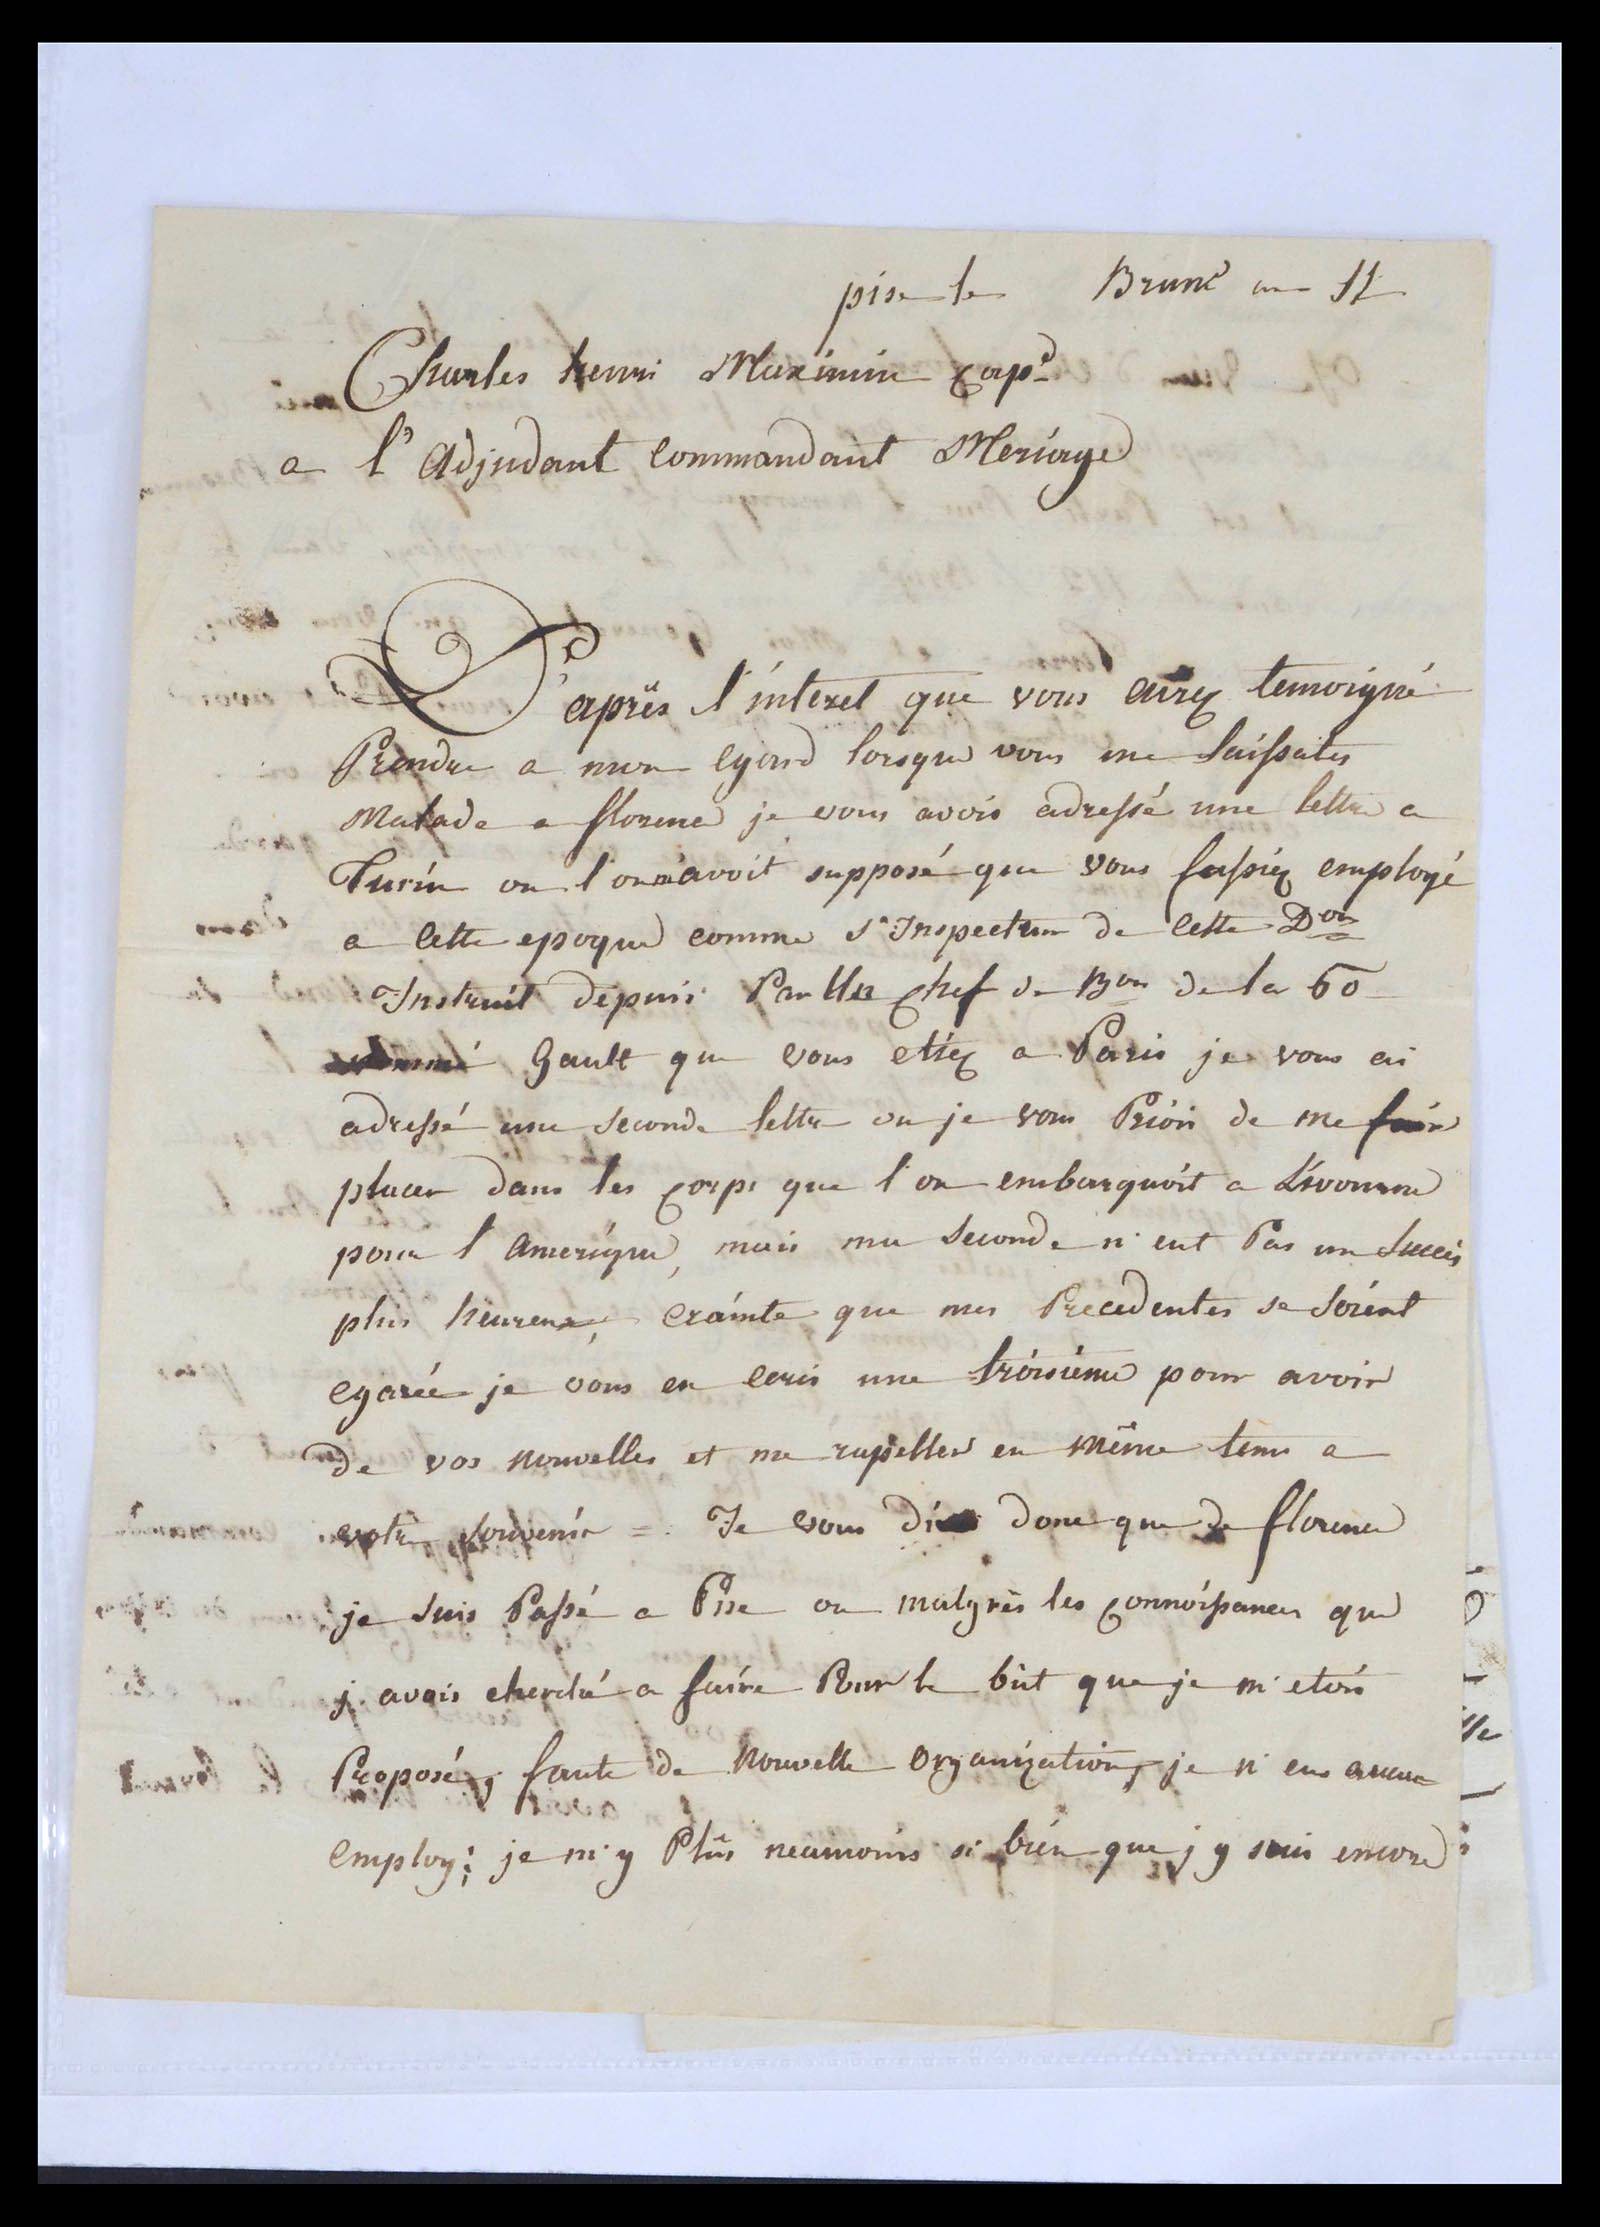 pise le Brum.e an 11
Charles henri Maximin Cap.e
a l'Adjudant Commandant Meriage
D'après l'interet que vous aviez temoigné
Prendre a mon egard lorsque vous me laissates
Malade a florence je vous avois adressé une lettre a
Turin ou l'on m'avoit supposé que vous fussiez employé
a cette epoque comme s. Inspecteur de cette D.on
Instruit depuis Par Un chef de B.on de la 60
nommé Gault que vous etiez a Paris je vous ai
adressé une seconde lettre ou je vous Priois de me faire
placer dans les corps que l'on embarquoit a Livourne
pour l'Amerique, mais ma seconde n'eut Pas un succès
plus heureux, crainte que mes Precedentes se soient
egarée je vous en ecris une troisième pour avoir
de vos nouvelles et me rapeller en même tems a
votre souvenir = Je vous donc que de florence
je suis Passé a Pise ou malgrès les connoissances que
j'avais cherché a faire Pour le but que je m'etois
Proposé, faute de nouvelle organization, je n'eus aucun
employ; je m'y Plûs neamoins si bien que j'y suis encore